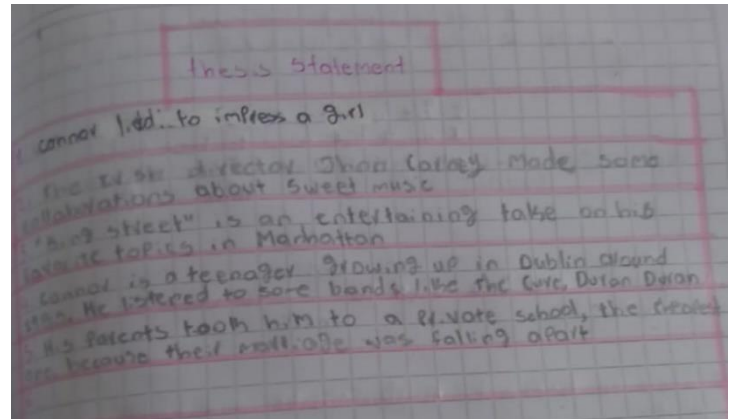 thesis statement
connor liddi to impress a girl
the irish director Jhon Carney made some
collaborations about sweet music
"sing street" is an entertaining take on his
favorite topics in Manhattan
connor is a teenager growing up in Dublin around
He listened to some bands like the Cure, Duran Duran
His parents took him to a private school, the cheapest
one because their marriage was falling apart